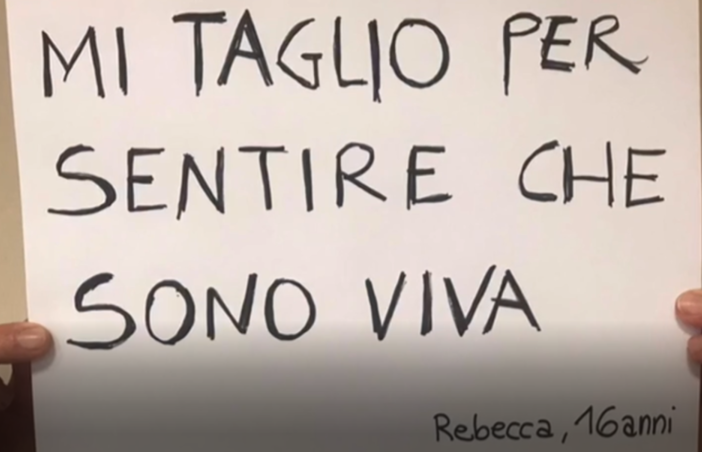 MI TAGLIO PER
SENTIRE CHE
SONO VIVA
Rebecca, 16 anni